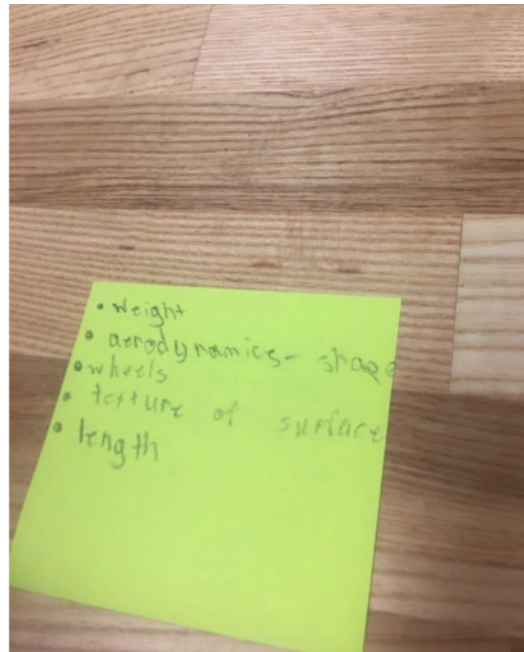 • weight
• aerodynamics- shape
• wheels
• texture of surface
• length